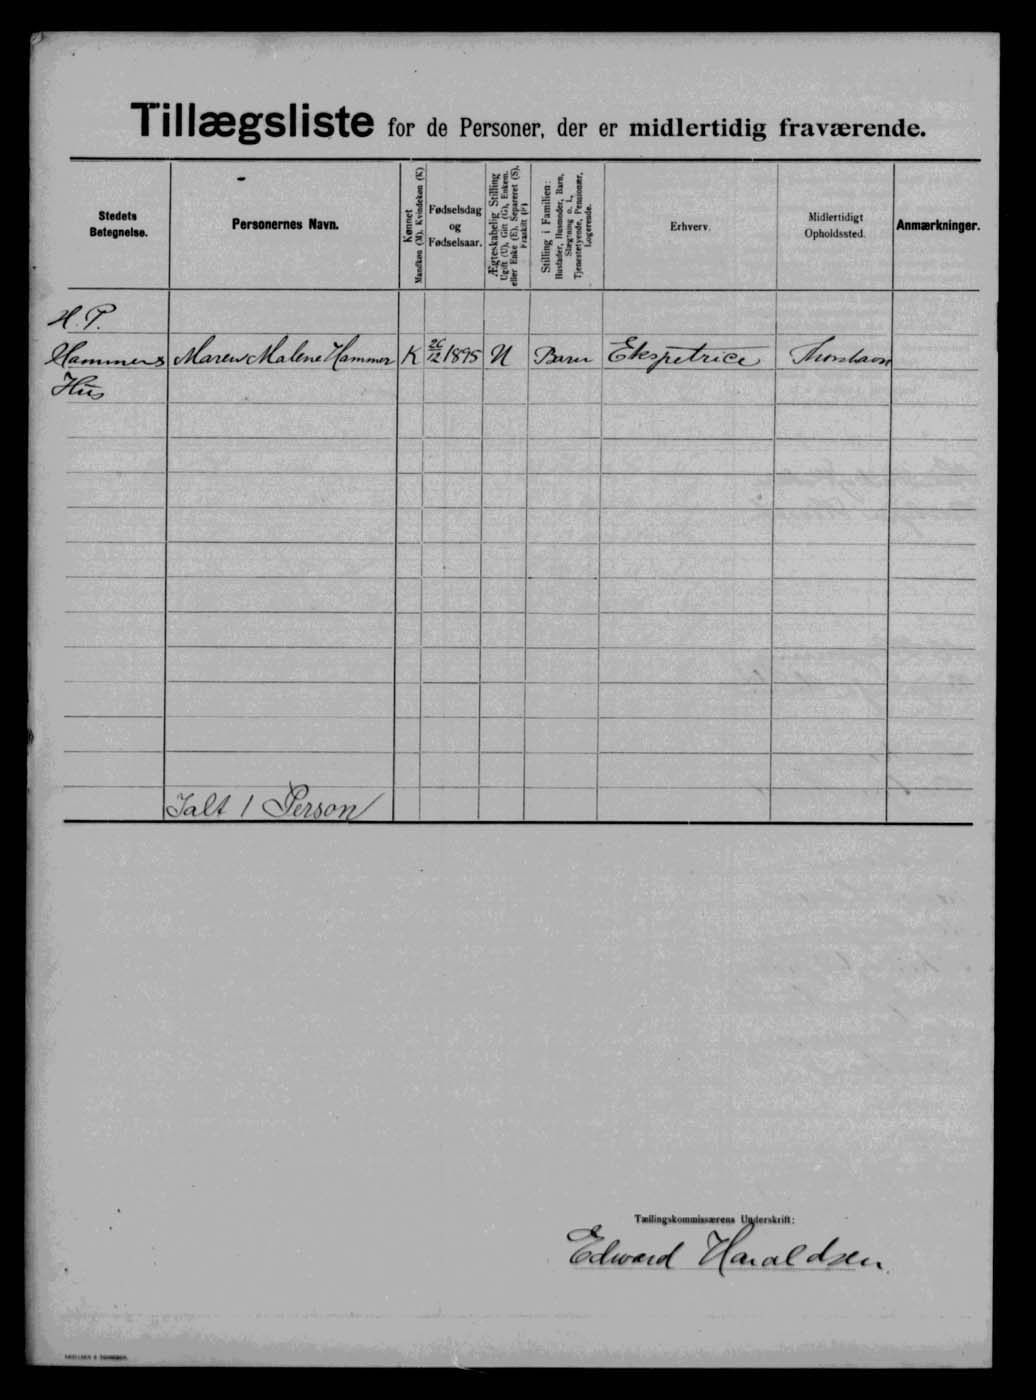 Tillægsliste for de Personer, der er midlertidig fraværende.
Stedets Betegnelse.
Personernes Navn.
Kønnet
Mandkøn (M), Kvindekøn (K)
Fødselsdag
og
Fødselsaar.
Ægteskabelig Stilling
Ugift (U), Gift (G), Enkem.
eller Enke (E), Separeret (S),
Fraskilt (F)
Stilling i Familien:
Husfader, Husmoder, Barn,
Slægtning o. l.,
Tjenestetyende, Pensionær,
Logerende.
Erhverv.
Midlertidigt
Opholdssted.
Anmærkninger.
H. P.
Hammers Maren Malene Hammer K 26/12 1895 U Barn Ekspetrice Thorshavn
Hus
Ialt 1 Person
Tællingskommissærens Underskrift:
Edward Haraldsen